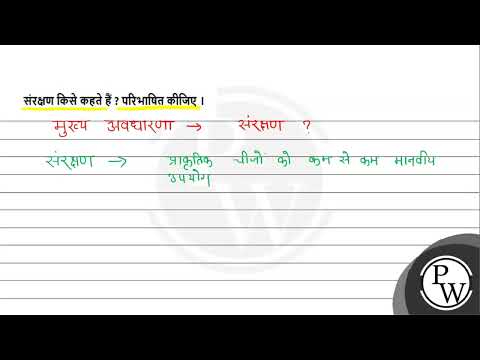 संरक्षण किसे कहते हैं ? परिभाषित कीजिए ।
मुख्य अवधारणा → संरक्षण ?
संरक्षण → प्राकृतिक चीजों को कम से कम मानवीय
उपयोग
PW
PW